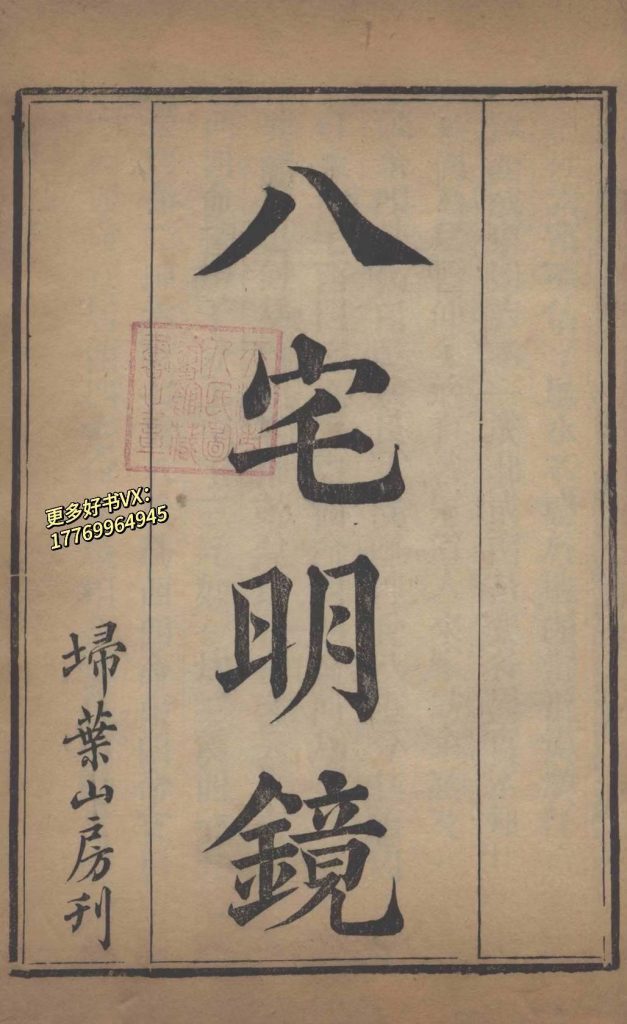 八宅明鏡
更多好书VX:
17769964945
埽葉山房刊